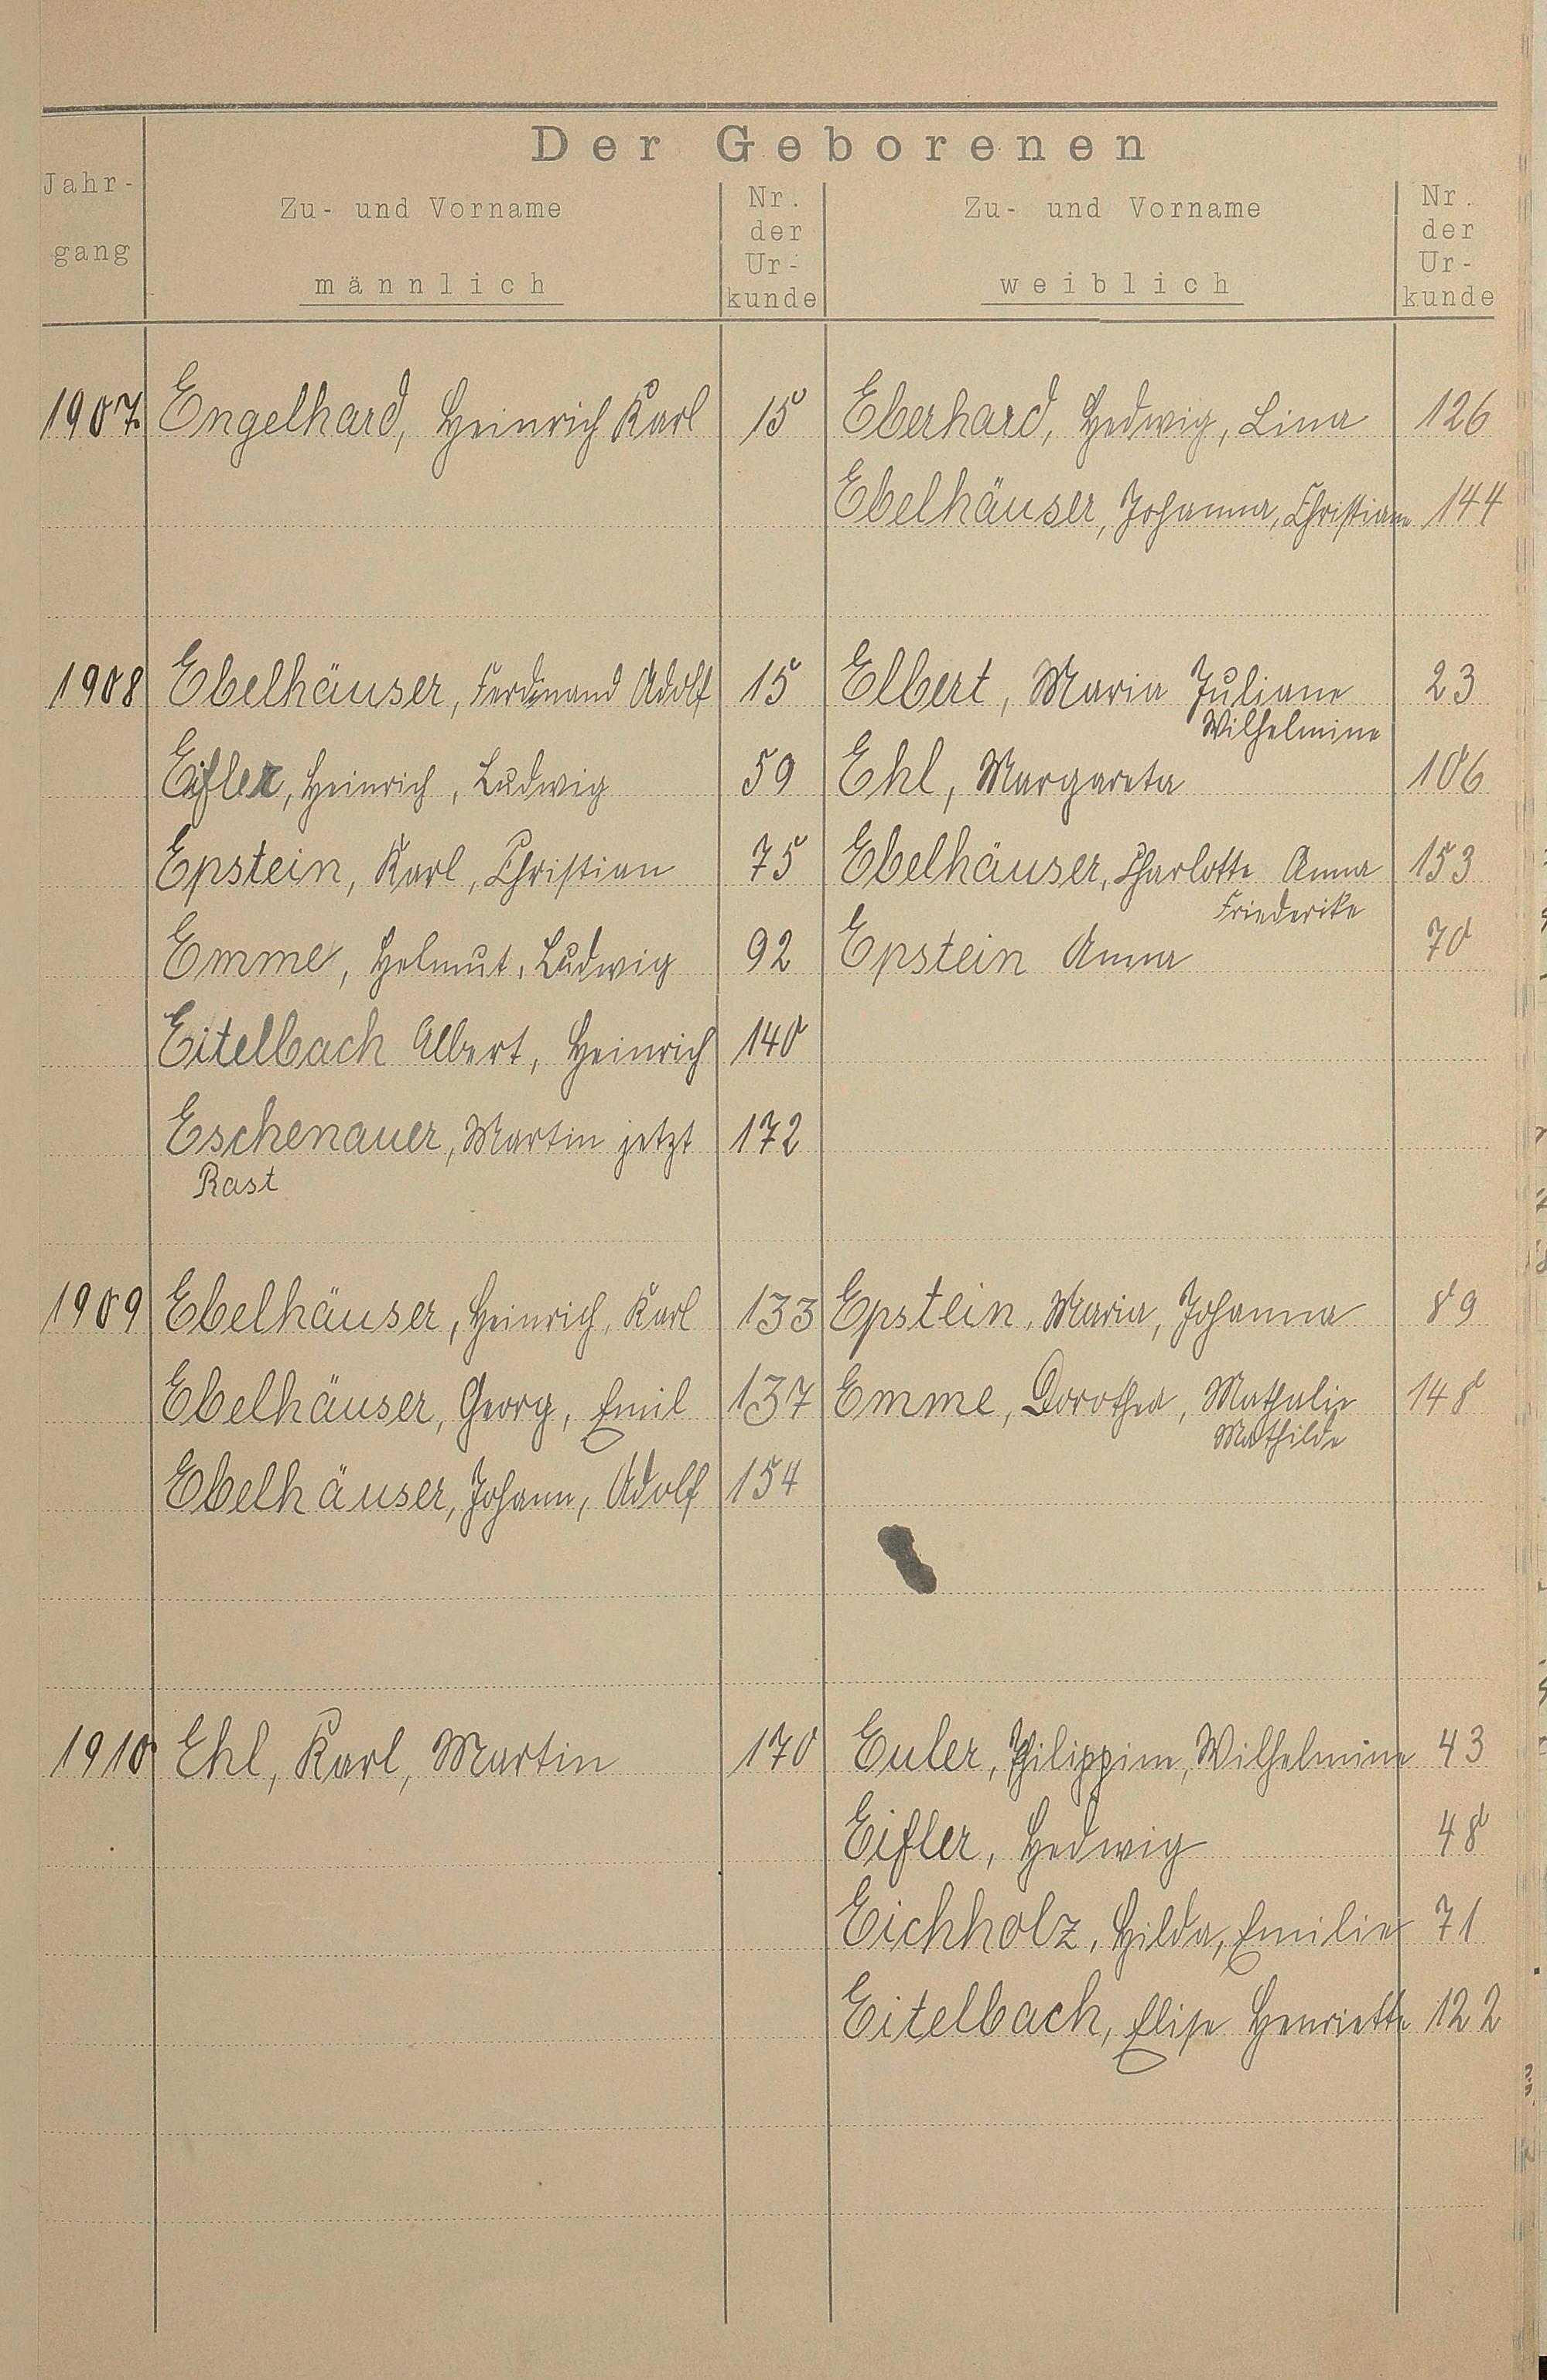 Der Geborenen
Jahr-
gang
Zu- und Vorname
männlich
Nr.
der
Ur-
kunde
Zu- und Vorname
weiblich
Nr.
der
Ur-
kunde
1907. Engelhard, Heinrich Karl 15 Eberhard, Hedwig, Lina 126
Ebelhäuser, Johanna, Christiane 144
1908 Ebelhäuser, Ferdinand Adolf 15 Elbert, Maria Juliane 23
Wilhelmine
Eifler, Heinrich, Ludwig 59 Ehl, Margareta 106
Epstein, Karl, Christian 75 Ebelhäuser, Charlotte Anna 153
Friederike
Emme, Helmut, Ludwig 92 Epstein Anna 70
Eitelbach Albert, Heinrich 140
Eschenauer, Martin jetzt 172
Rast
1909 Ebelhäuser, Heinrich, Karl 133 Epstein, Maria, Johanna 89
Ebelhäuser, Georg, Emil 137 Emme, Dorothea, Mathalie 148
Mathilde
Ebelhäuser, Johann, Adolf 154
1910 Ehl, Karl, Martin 170 Euler, Philippine, Wilhelmine 43
Eifler, Hedwig 48
Eichholz, Hilda, Emilie 71
Eitelbach, Elise Henriette 122